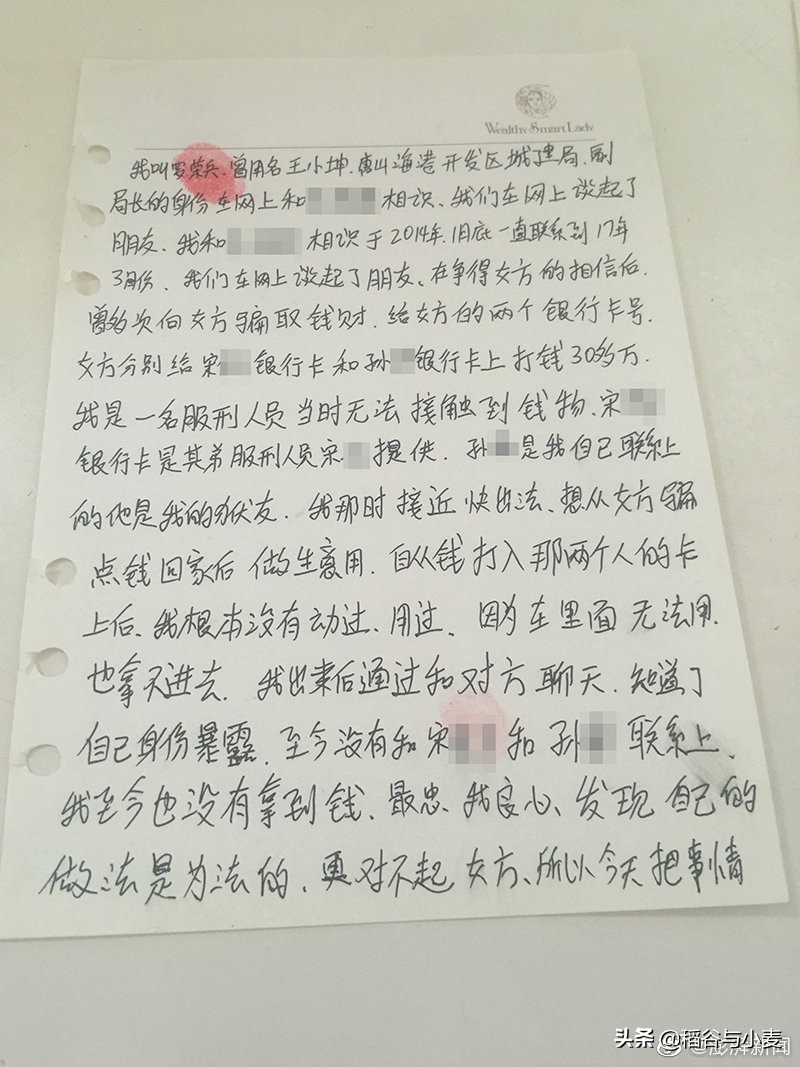 Wealthy Smart Lady
我叫罗荣兵、曾用名王小坤.唐山海港开发区城建局.副
局长的身份在网上和 相识、我们在网上谈起了
朋友、我和 相识于2014年.旧底一直联系到17年
3月份、我们在网上谈起了朋友、在争得女方的相信后.
曾多次向女方骗取钱财.给女方的两个银行卡号.
女方分别给宋 银行卡和孙 银行卡上打钱30多万.
我是一名服刑人员当时无法接触到钱物、宋
银行卡是其弟服刑人员宋 提供.孙 是我自己联系上
的他是我的狱友.我那时接近快出法、想从女方骗
点钱回家后做生意用.自从钱打入那两个人的卡
上后、我根本没有动过、用过、因为在里面无法用.
也拿不进去.我出来后通过和对方聊天.知道了
自己身份暴露.至今没有和宋 和孙 联系上、
我至今也没有拿到钱、最忠、我良心、发现自己的
做法是为法的、更对不起女方、所以今天把事情
头条 @稻谷与小麦
@澎湃新闻